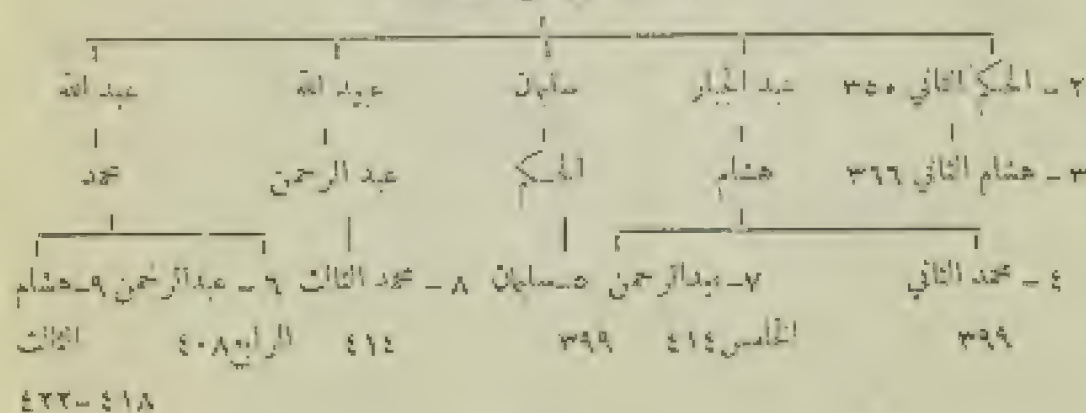 ٢ - الحكم الثاني ٣٥٠ عبد الجبار سليمان عبيد الله عبد الله
٣ - هشام الثاني ٣٦٦ هشام الحكم عبد الرحمن محمد
٤ - محمد الثاني ٧- عبدالرحمن ٥-سليمان ٨ - محمد الثالث ٦ - عبدالرحمن ٩-هشام
٣٩٩ الخامس٤١٤ ٣٩٩ ٤١٤ الرابع٤٠٨ الثالث
٤١٨-٤٢٢